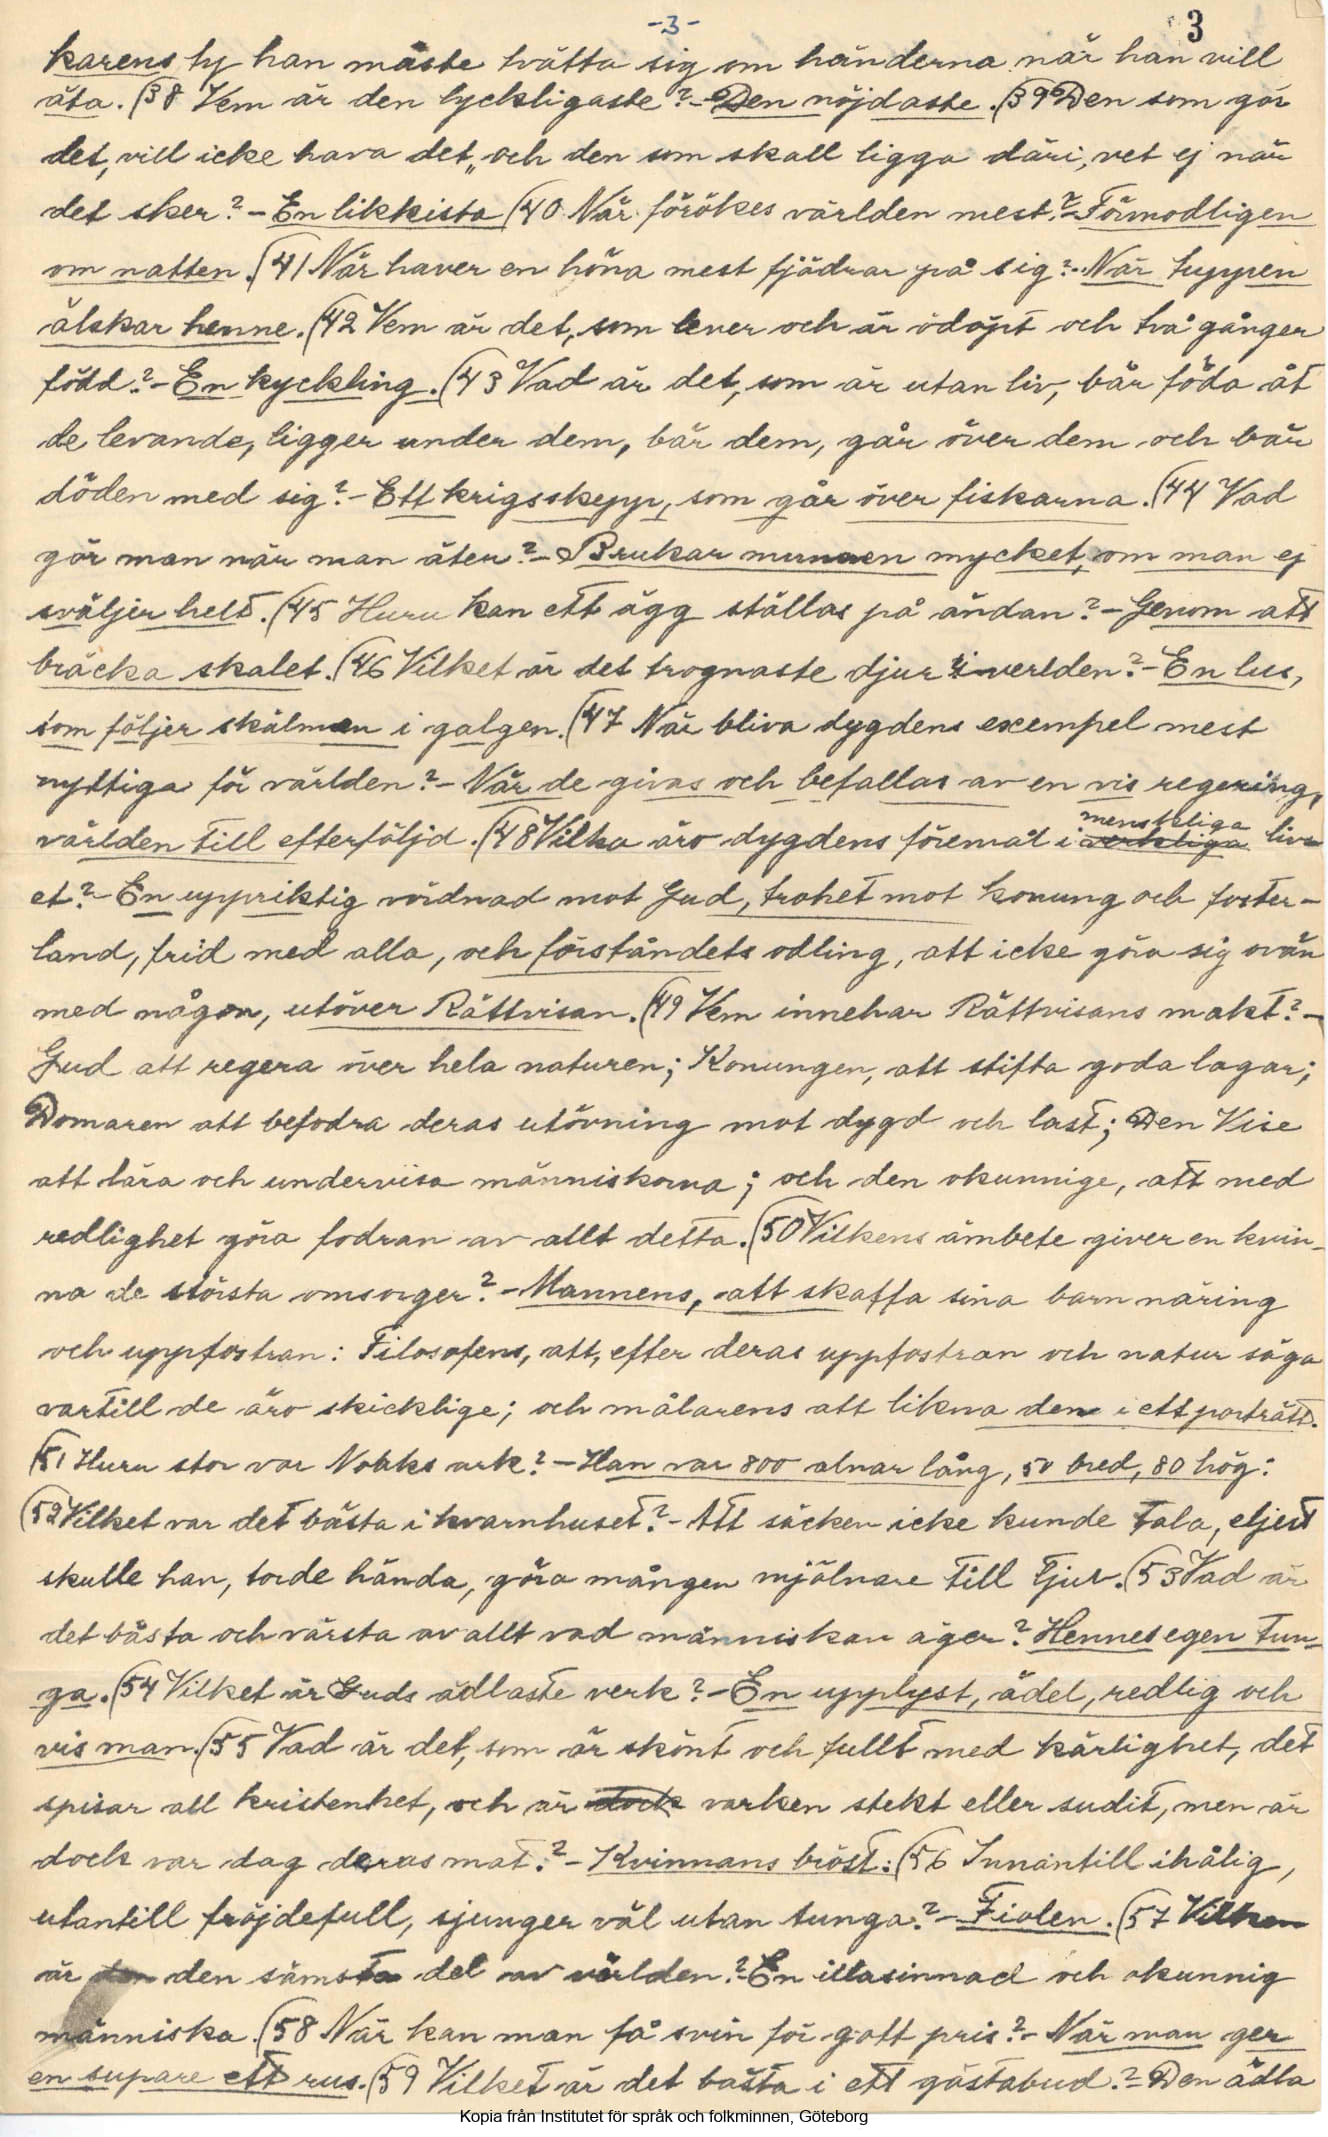 -3-
3
karens ty han måste tvätta sig om händerna när han vill
äta. (38 Vem är den lyckligaste? - Den nöjdaste. (39 Den som gör
det, vill icke hava det, och den som skall ligga däri, vet ej när
det sker? - En likkista (40 När förökes världen mest? - Förmodligen
om natten. (41 När haver en höna mest fjädrar på sig? - När tuppen
älskar henne. (42 Vem är det, som lever och är odöpt och två gånger
född? - En kyckling. (43 Vad är det, som är utan liv, bär föda åt
de levande, ligger under dem, bär dem, går över dem och bär
döden med sig? - Ett krigsskepp, som går över fiskarna. (44 Vad
gör man när man äter? - Brukar munnen mycket, om man ej
sväljer helt. (45 Huru kan ett ägg ställas på ändan? - Genom att
bräcka skalet. (46 Vilket är det trognaste djur i verlden? - En lus,
som följer skälmen i galgen. (47 När bliva dygdens exempel mest
nyttiga för världen? - När de givas och befallas av en vis regering,
världen till efterföljd. (48 Vilka äro dygdens föremål i menskliga liv-
et? - En uppriktig vördnad mot Gud, trohet mot konung och foster-
land, frid med alla, och förståndets odling, att icke göra sig ovän
med någon, utöver Rättvisan. (49 Vem innehar Rättvisans makt? -
Gud att regera över hela naturen; Konungen, att stifta goda lagar;
Domaren att befodra deras utövning mot dygd och last; Den Vise
att lära och undervisa människorna; och den okunnige, att med
redlighet göra fodran av allt detta. (50 Vilkens ämbete giver en kvin-
na de största omsorger? - Mannens, att skaffa sina barn näring
och uppfostran: Filosofens, att, efter deras uppfostran och natur säga
vartill de äro skicklige; och målarens att likna dem i ett porträtt.
(51 Huru stor var Noaks ark? - Han var 800 alnar lång, 50 bred, 80 hög:
(52 Vilket var det bästa i kvarnhuset? - Att säcken icke kunde tala, eljest
skulle han, torde hända, göra mången mjölnare till tjuv. (53 Vad är
det bästa och värsta av allt vad människan äger? Hennes egen tun-
ga. (54 Vilket är Guds ädlaste verk? - En upplyst, ädel, redlig och
vis man. (55 Vad är det, som är skönt och fullt med kärlighet, det
spisar all kristenhet, och är dock varken stekt eller sudit, men är
dock var dag deras mat? - Kvinnans bröst: (56 Innantill ihålig,
utantill fröjdefull, sjunger väl utan tunga? - Fiolen. (57 Vilken
är den den sämsta del av världen? - En illasinnad och okunnig
människa. (58 När kan man få svin för gott pris? - När man ger
en supare ett rus. (59 Vilket är det bästa i ett gästabud? - Den ädla
Kopia från Institutet för språk och folkminnen, Göteborg